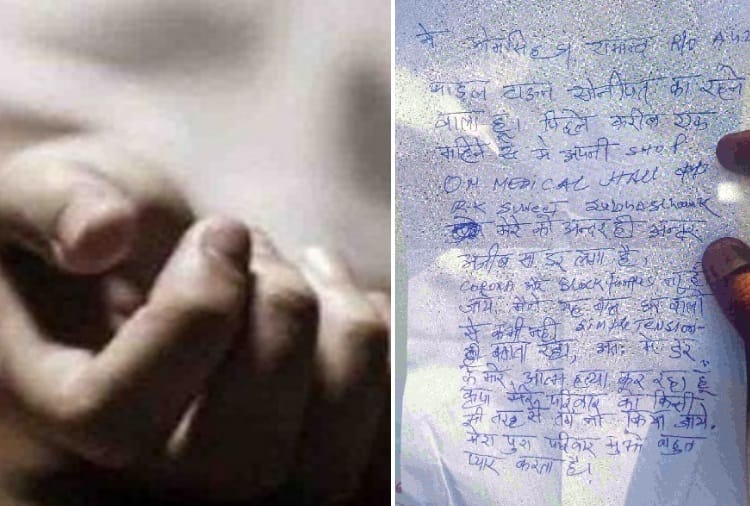 मै ओमसिंह S/o रामचन्द्र R/o A
माडल टाउन सोनीपत का रहने
वाला हूं। पिछले करीब एक
महिने से मै अपनी SHOP
OM MEDICAL HALL
R.K Sweet Subhash chowk
मेरे को अन्दर ही अन्दर
अजीब सा डर लगा है।
corona और Black fungus ना हो
जाये। मैने यह बात घर वालो
से कभी नही SIMPLE TENSION
ही बताता रहा, अतः मै डर
के मारे आत्म हत्या कर रहा हूं
कृपा मेरे परिवार का किसी
भी तरह से तंग ना किया जाये.
मेरा पुरा परिवार मुझे बहुत
प्यार करता है।